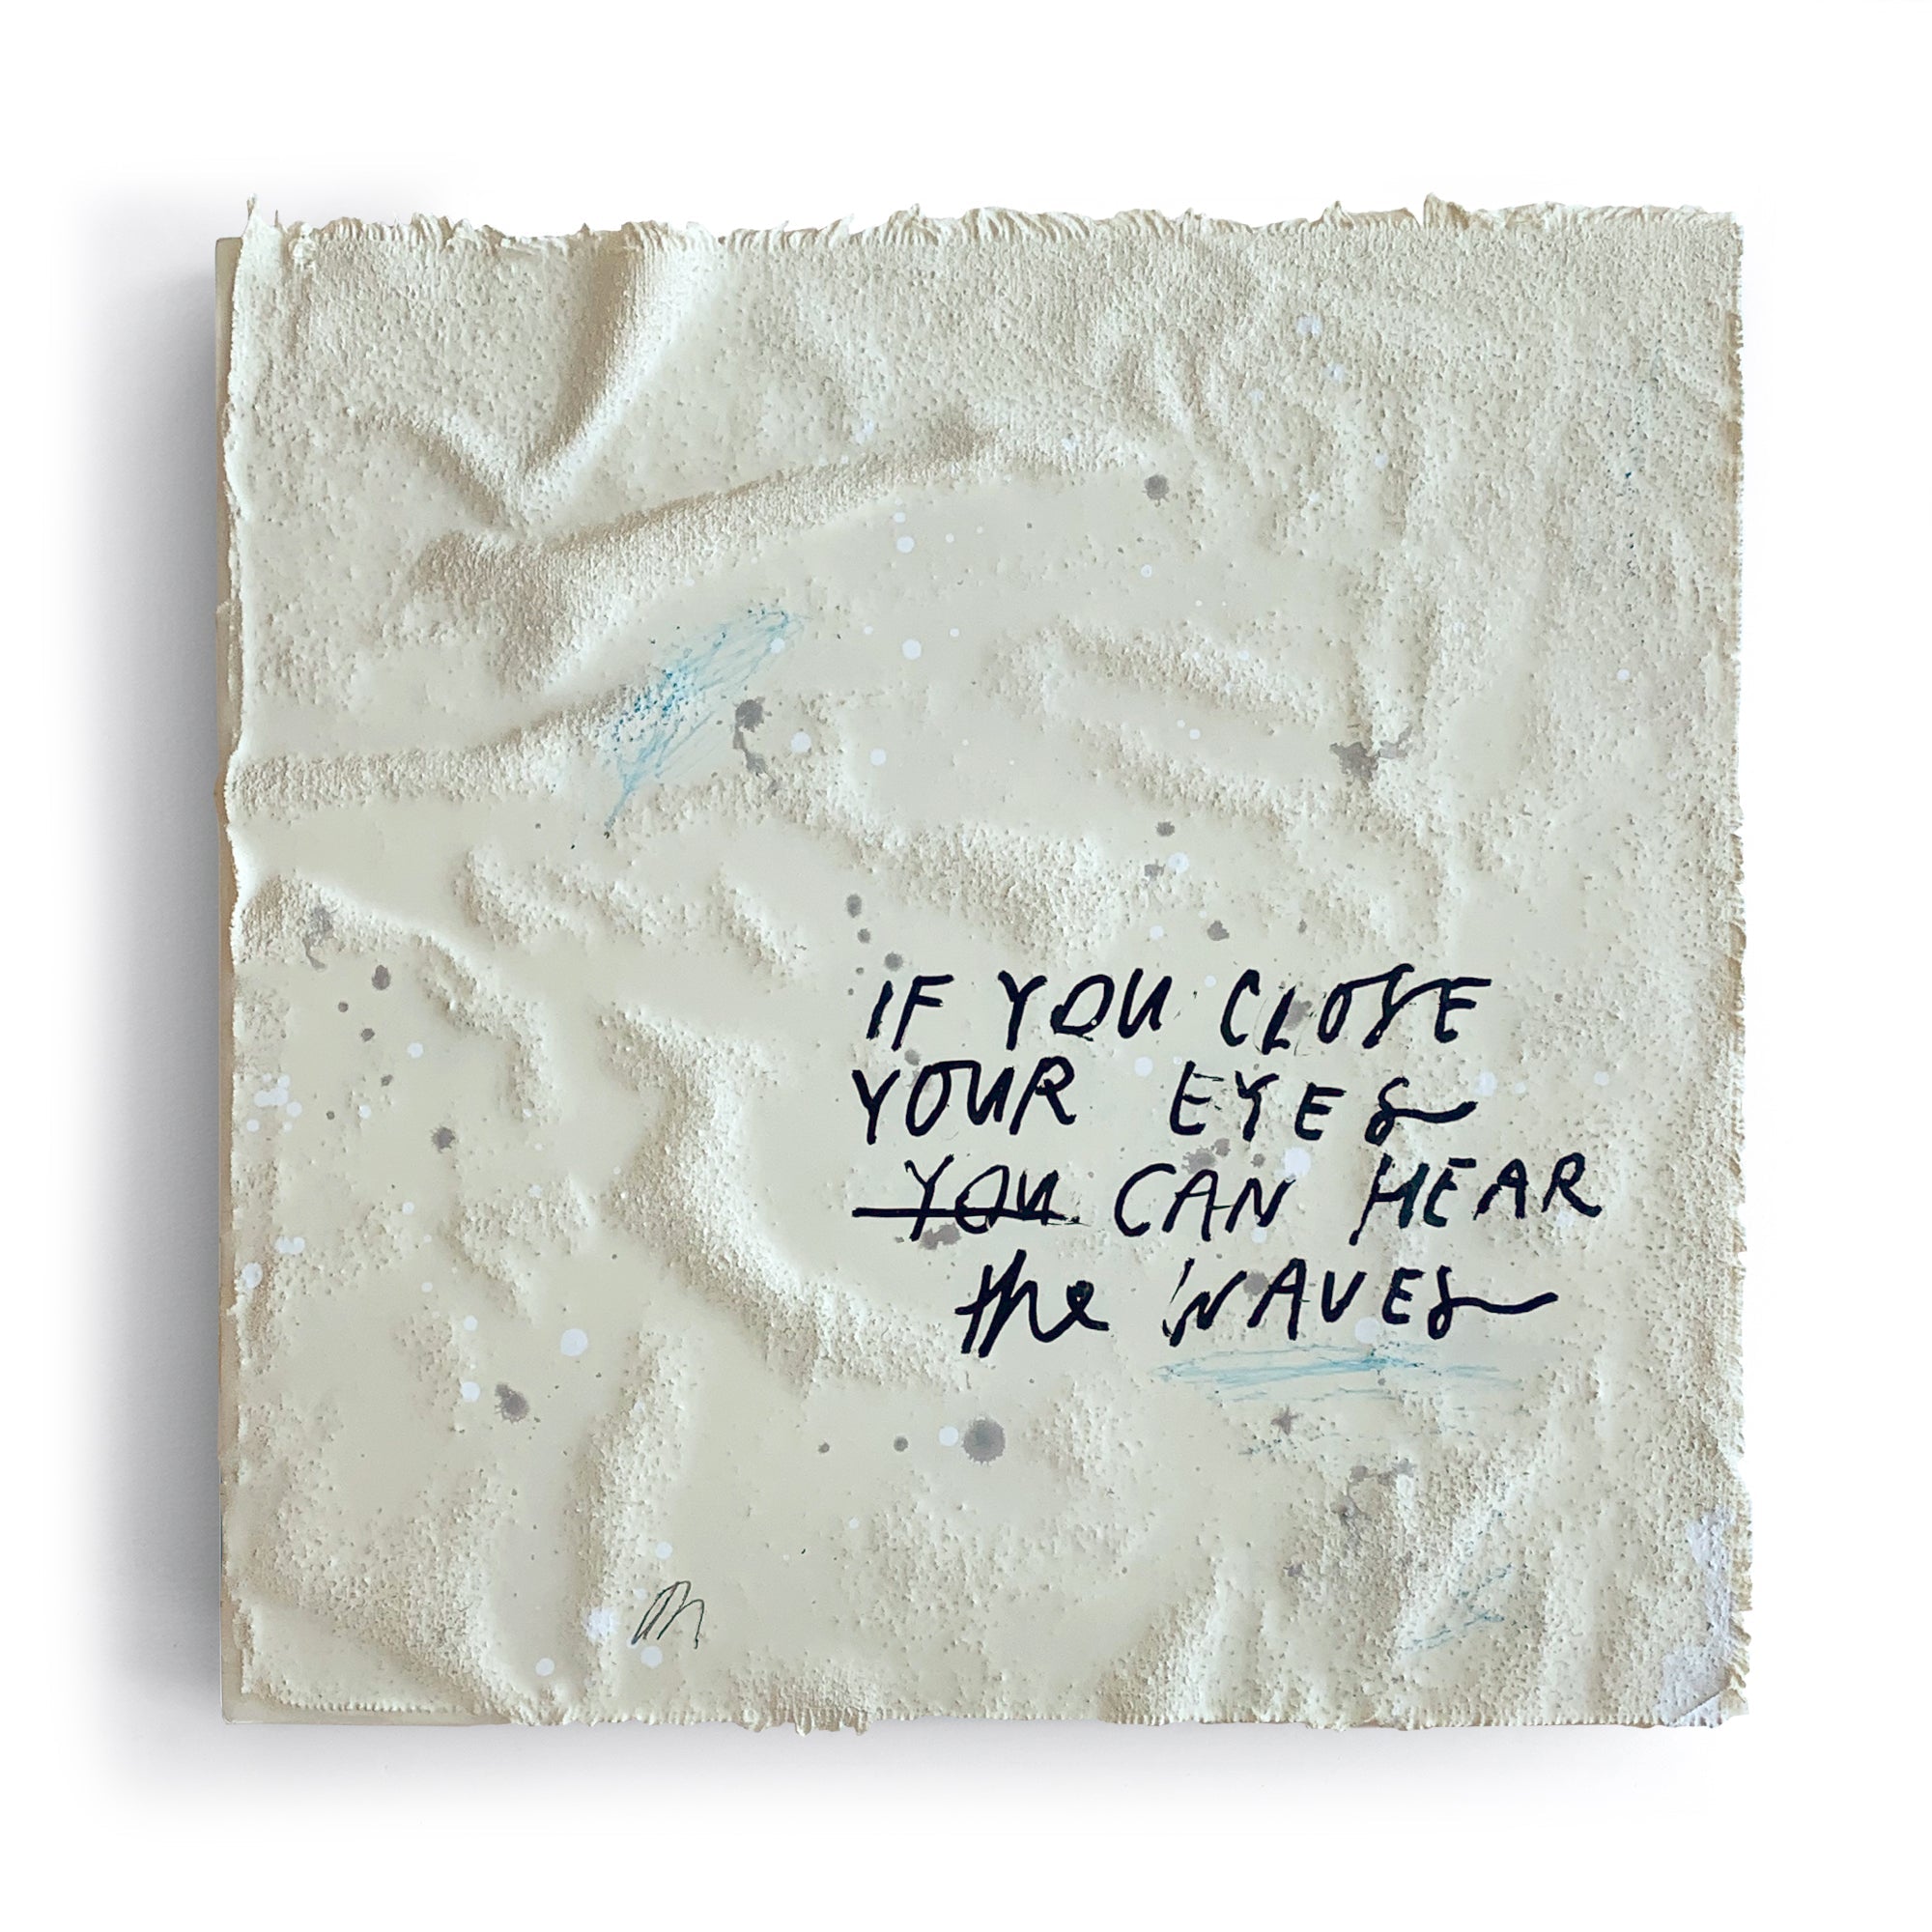 IF YOU CLOSE
YOUR EYES
YOU CAN HEAR
the WAVES